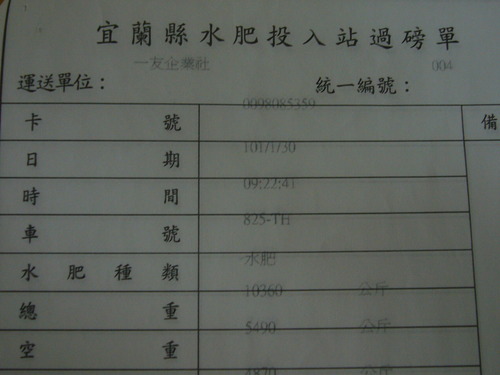 宜蘭縣水肥投入站過磅單
一友企業社 004
運送單位： 統一編號：
0098085359
卡號 備
101/1/30
日期
09:22:41
時間
825-TH
車號
水肥
水肥種類
10360 公斤
總重
5490 公斤
空重
4870 公斤